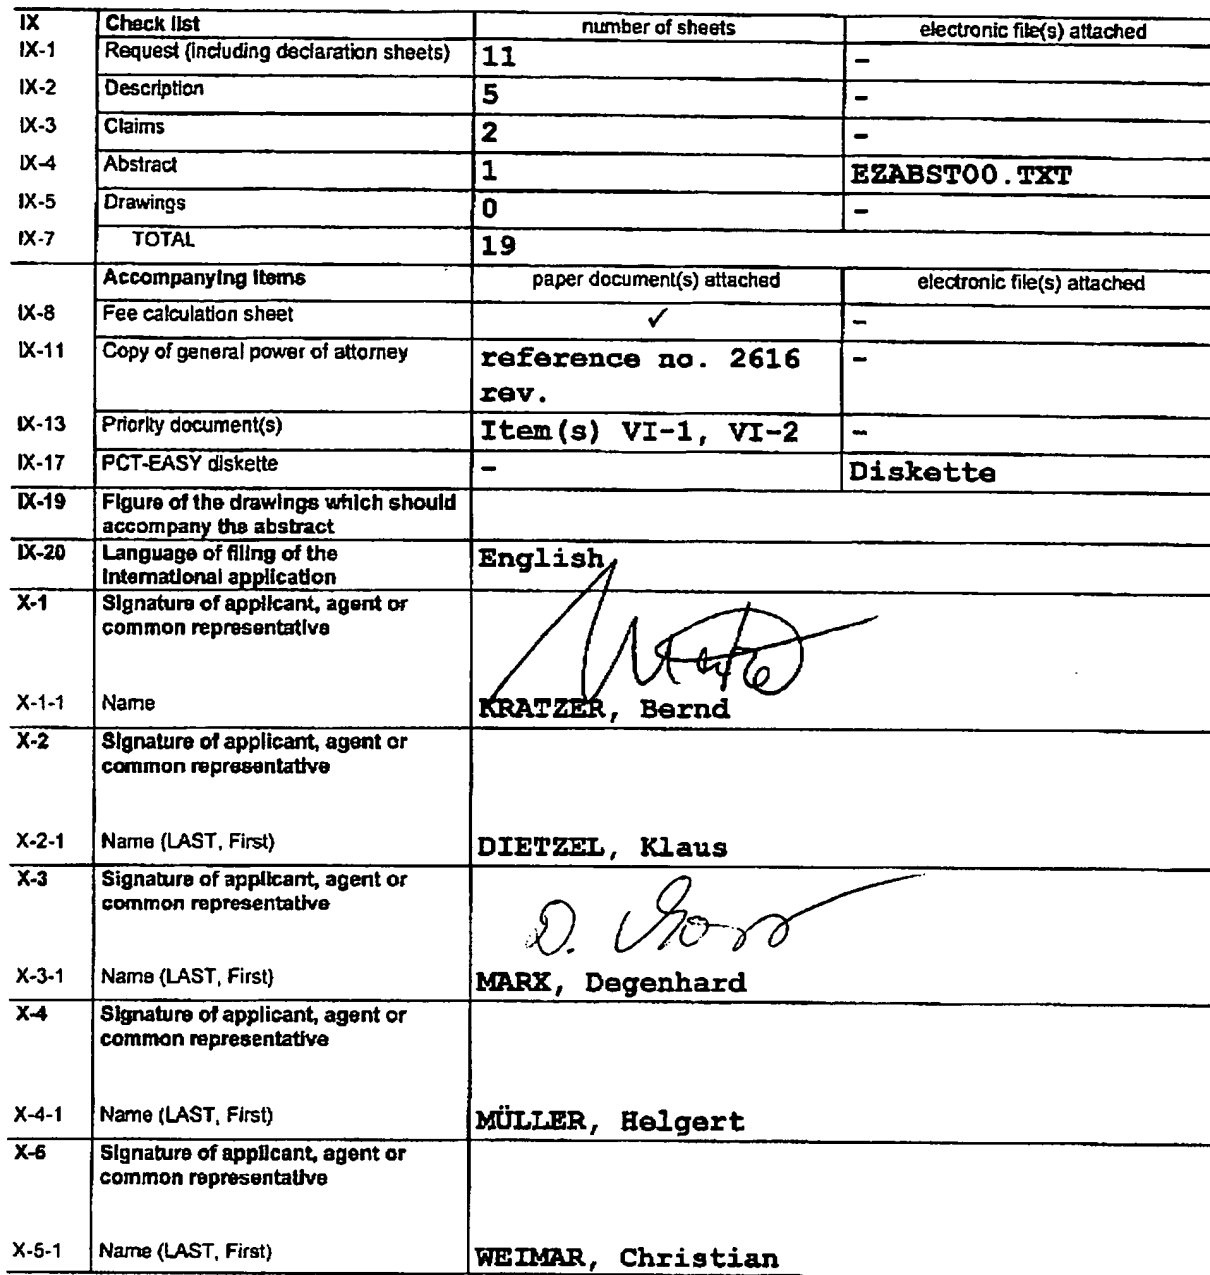 IX Check list number of sheets electronic file(s) attached
IX-1 Request (including declaration sheets) 11 -
IX-2 Description 5 -
IX-3 Claims 2 -
IX-4 Abstract 1 EZABST00.TXT
IX-5 Drawings 0 -
IX-7 TOTAL 19
Accompanying items paper document(s) attached electronic file(s) attached
IX-8 Fee calculation sheet ✓ -
IX-11 Copy of general power of attorney reference no. 2616 -
rev.
IX-13 Priority document(s) Item(s) VI-1, VI-2 -
IX-17 PCT-EASY diskette - Diskette
IX-19 Figure of the drawings which should
accompany the abstract
IX-20 Language of filing of the English
international application
X-1 Signature of applicant, agent or
common representative
X-1-1 Name KRATZER, Bernd
X-2 Signature of applicant, agent or
common representative
X-2-1 Name (LAST, First) DIETZEL, Klaus
X-3 Signature of applicant, agent or
common representative
D.
X-3-1 Name (LAST, First) MARX, Degenhard
X-4 Signature of applicant, agent or
common representative
X-4-1 Name (LAST, First) MÜLLER, Helgert
X-5 Signature of applicant, agent or
common representative
X-5-1 Name (LAST, First) WEIMAR, Christian